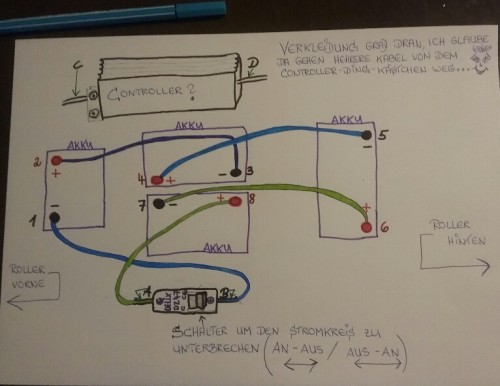 VERKLEIDUNG GRAD DRAN, ICH GLAUBE
DA GEHEN MEHRERE KABEL VON DEM
CONTROLLER-DING-KÄSTCHEN WEG...
C
D
CONTROLLER?
AKKU
AKKU
AKKU
2
+
4
+
-
3
5
-
1
-
7
-
+
8
+
6
AKKU
ROLLER
VORNE
ROLLER
HINTEN
A
B
SCHALTER UM DEN STROMKREIS ZU
UNTERBRECHEN (AN-AUS / AUS-AN)